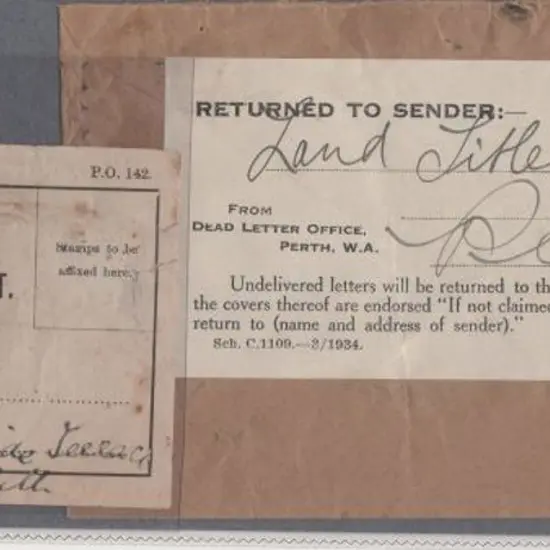 P.O. 142.
Stamps to be
affixed here.
T.
Terrace
RETURNED TO SENDER:—
Land Title
FROM
DEAD LETTER OFFICE,
PERTH, W.A.
Undelivered letters will be returned to th
the covers thereof are endorsed "If not claimed
return to (name and address of sender)."
Sch. C.1109.—3/1934.